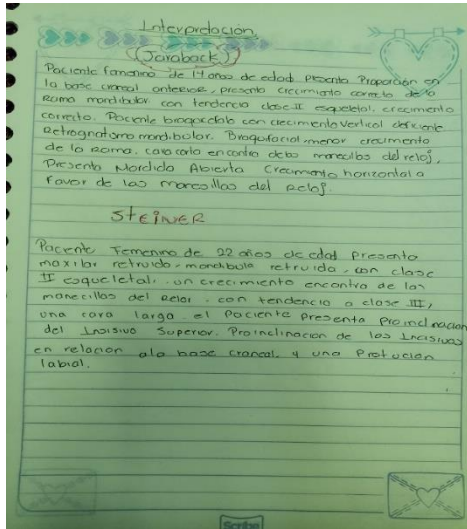 Interpretación.
(Jaraback)
Paciente femenino de 14 años de edad. Presenta Proporción en
la base craneal anterior, presenta crecimiento correcto de la
Rama mandibular con tendencia clase II esqueletal, crecimiento
correcto. Paciente braquicefalo con crecimiento vertical deficiente
Retrognatismo mandibular. Braquifacial, menor crecimiento
de la Rama, cara corta encontra de las manecillas del reloj,
Presenta Mordida Abierta Crecimiento horizontal a
favor de las manecillas del Reloj.
STEINER
Paciente Femenino de 22 años de edad Presenta
maxilar retruido, mandibula retruida, con clase
II esqueletal, un crecimiento encontra de las
manecillas del Reloj, con tendencia a clase III,
una cara larga, el Paciente Presenta Proinclinacion
del Incisivo Superior. Proinclinacion de los Incisivos
en relación ala base craneal, y una Protución
labial.
Scribe